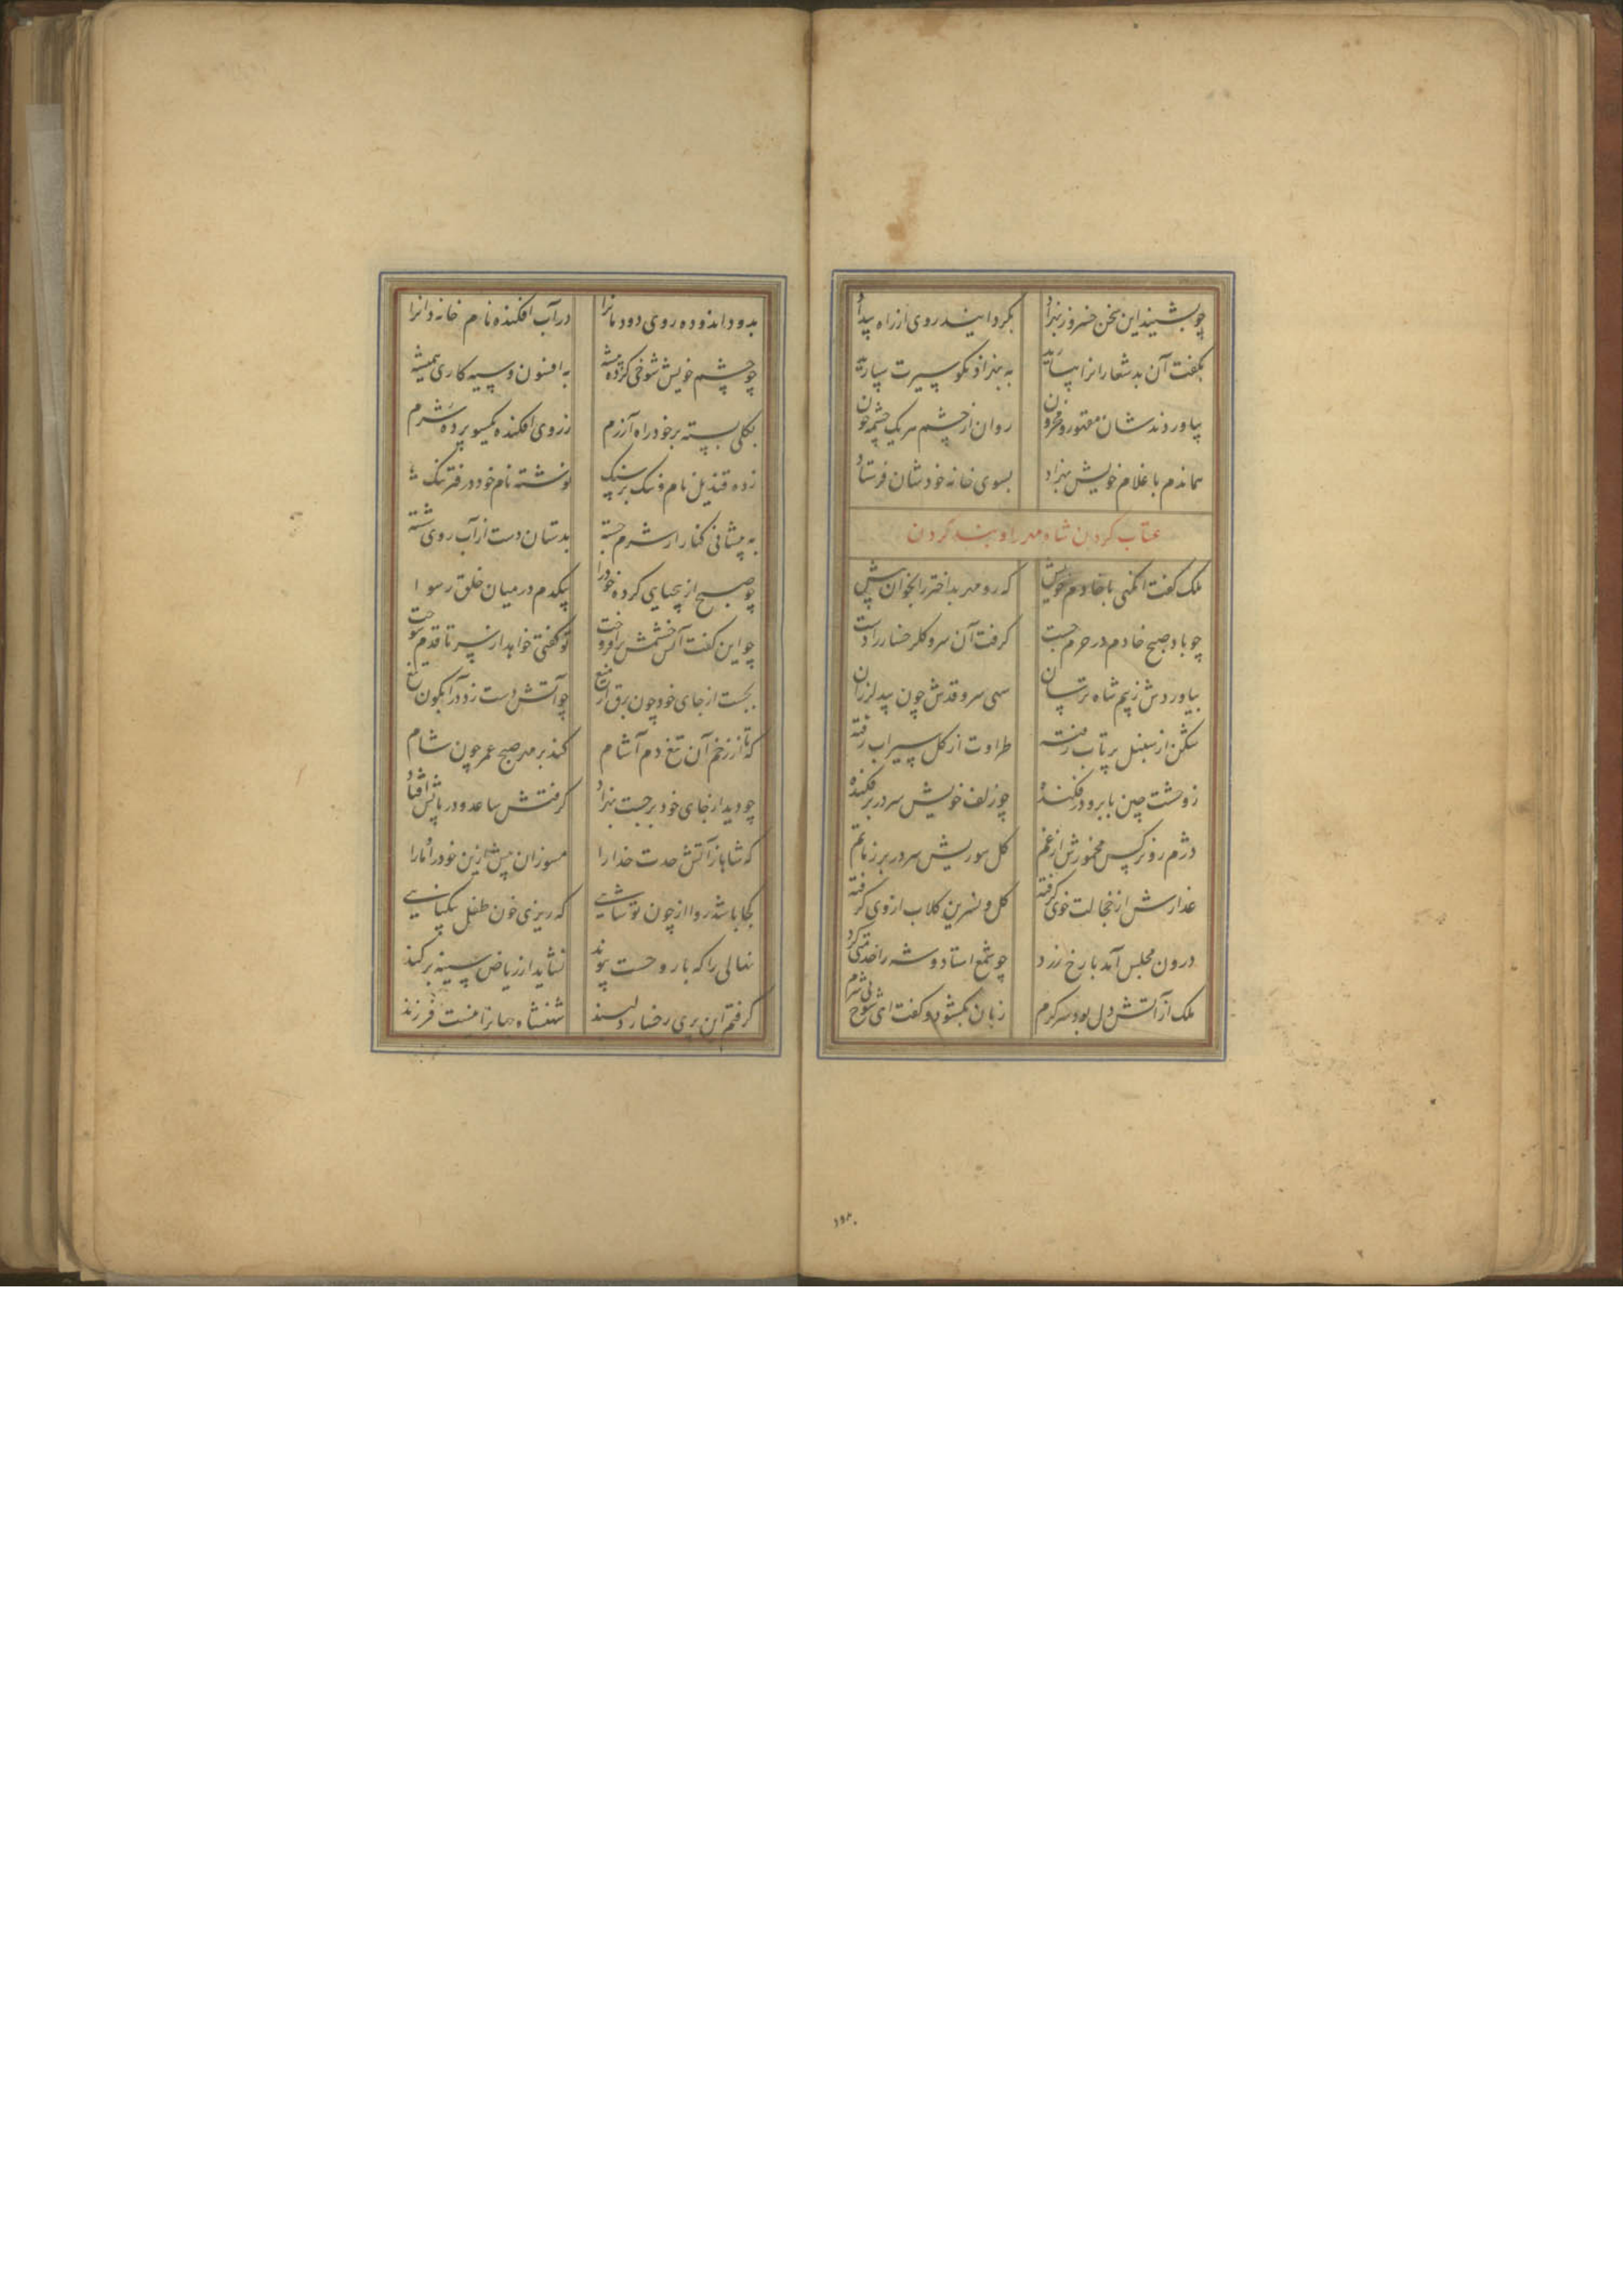 چو بشنید این سخن خسرو ز بهزاد بگردانید روی از راه بیداد
بگفت آن بدشعارانرا بیارید به بهزاد نکو سیرت سپارید
بیاوردندشان مقهور و محزون روان از چشم هر یک چشمه خون
هماندم با غلام خویش بهزاد بسوی خانه خودشان فرستاد
عتاب کردن شاه مهر را و بند کردن
ملک گفت انگهی با خادم خویش که رو مهر بداختر را بخوان پیش
چو باد صبح خادم در حرم جست گرفت آن سرو گلرخسار را دست
بیاوردش ز بیم شاه ترسان سهی سرو قدش چون بید لرزان
شکن از سنبل پرتاب رفته طراوت از گل سیراب رفته
ز وحشت چین بابرو در فکنده چو زلف خویش سر در بر فکنده
دژم رو نرگس مخمورش از غم گل سوریش سر در بر ز ماتم
عذارش از خجالت خوی گرفته گل و نسرین گلاب از وی گرفته
درون مجلس آمد با رخ زرد چو شمع استاد و شه را خدمتی کرد
ملک از آتش دل بود سرگرم زبان بگشود و گفت ای شوخ بی شرم
بدود اندوده روی دودمانرا در آب افکنده نام خاندانرا
چو چشم خویش شوخی کرده پیشه به افسون و سیه کاری همیشه
بکلی بسته بر خود راه آزرم ز روی افکنده یکسو پرده شرم
زده قندیل نام و ننگ بر سنگ نوشته نام خود در دفتر ننگ
به پیشانی کنار از شرم جسته بدستان دست از آب روی شسته
چو صبح از بیحیایی کرده خود را بیکدم در میان خلق رسوا
چو این گفت آتش خشمش برافروخت تو گفتی خواهد از سر تا قدم سوخت
بجست از جای خود چون برق از میغ چو آتش دست زد در آبگون تیغ
که تا از زخم آن تیغ دم آشام کند بر مهر صبح عمر چون شام
چو دید از جای خود برجست بهزاد گرفتش ساعد و در پایش افتاد
که شاها ز آتش حدت خدا را مسوزان بیش ازین خود را و ما را
کجا باشد روا از چون تو شاهی که ریزی خون طفل بیگناهی
نهالی را که با روحست پیوند نشاید از ریاض سینه برکند
گرفتم این پری رخسار دلبند شهنشاه جهانرا نیست فرزند